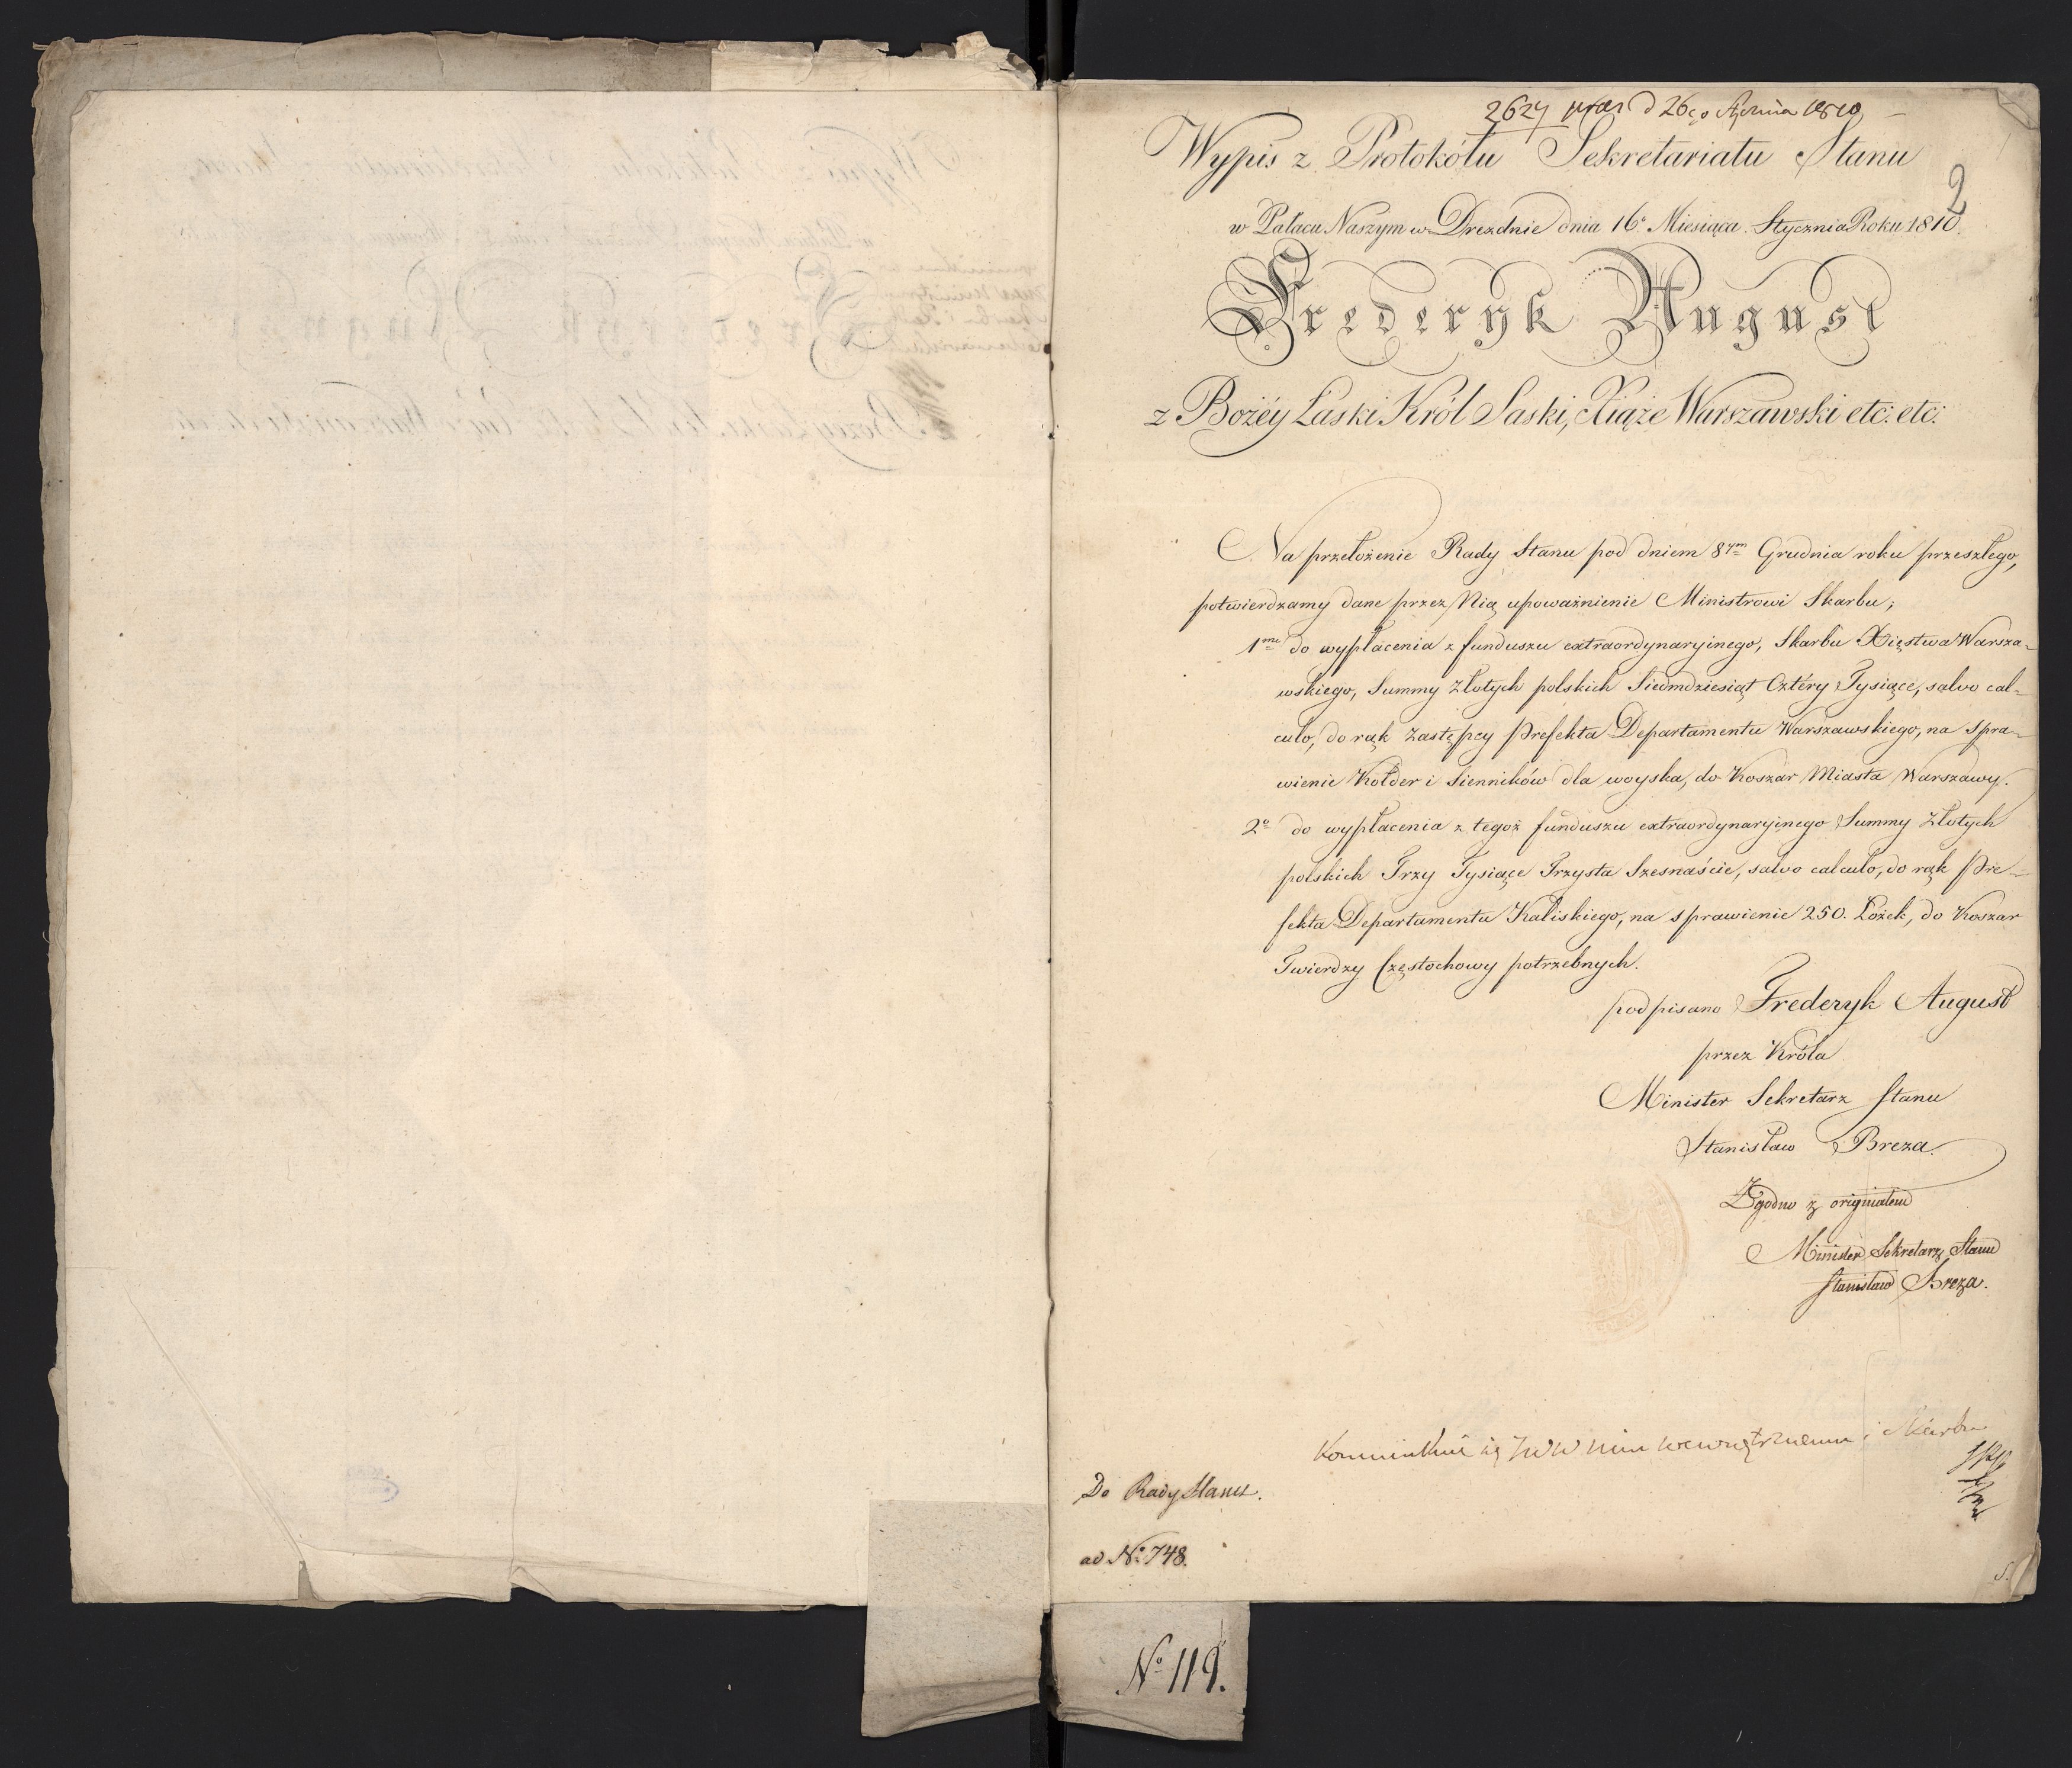 2627 d 26go Stycznia 1810
Wypis z Protokółu Sekretariatu Stanu
2
w Pałacu Naszym w Dreznie dnia 16º Miesiąca Stycznia Roku 1810
Frederyk August
z Bożéy Łaski Król Saski, Xiąże Warszawski etc: etc:
Na przełożenie Rady Stanu pod dniem 8ym Grudnia roku przeszłego,
potwierdzamy dane przez Nią upoważnienie Ministrowi Skarbu;
1me do wypłacenia z funduszu extraordynaryinego, Skarbu Xięstwa Warsza-
wskiego, Summy Złotych polskich Siedmdziesiąt Cztéry Tysiące, salvo cal-
culo, do rąk Zastępcy Prefekta Departamentu Warszawskiego, na spra-
wienie Kołder i Sienników dla woyska, do Koszar Miasta Warszawy.
2º do wypłacenia z tegoż funduszu extraordynaryinego Summy Złotych
polskich Trzy Tysiące Trzysta Szesnaście, salvo calculo, do rąk Pre-
fekta Departamentu Kaliskiego, na sprawienie 250. Łożek, do Koszar
Twierdzy Częstochowy potrzebnych.
podpisano Frederyk August
przez Króla
Minister Sekretarz Stanu
Stanisław Breza.
Zgodno z originałem
Minister Sekretarz Stanu
Stanisław Breza.
i Skarbu
Do Rady Stanu.
ad Nº 748.
Nº 119.